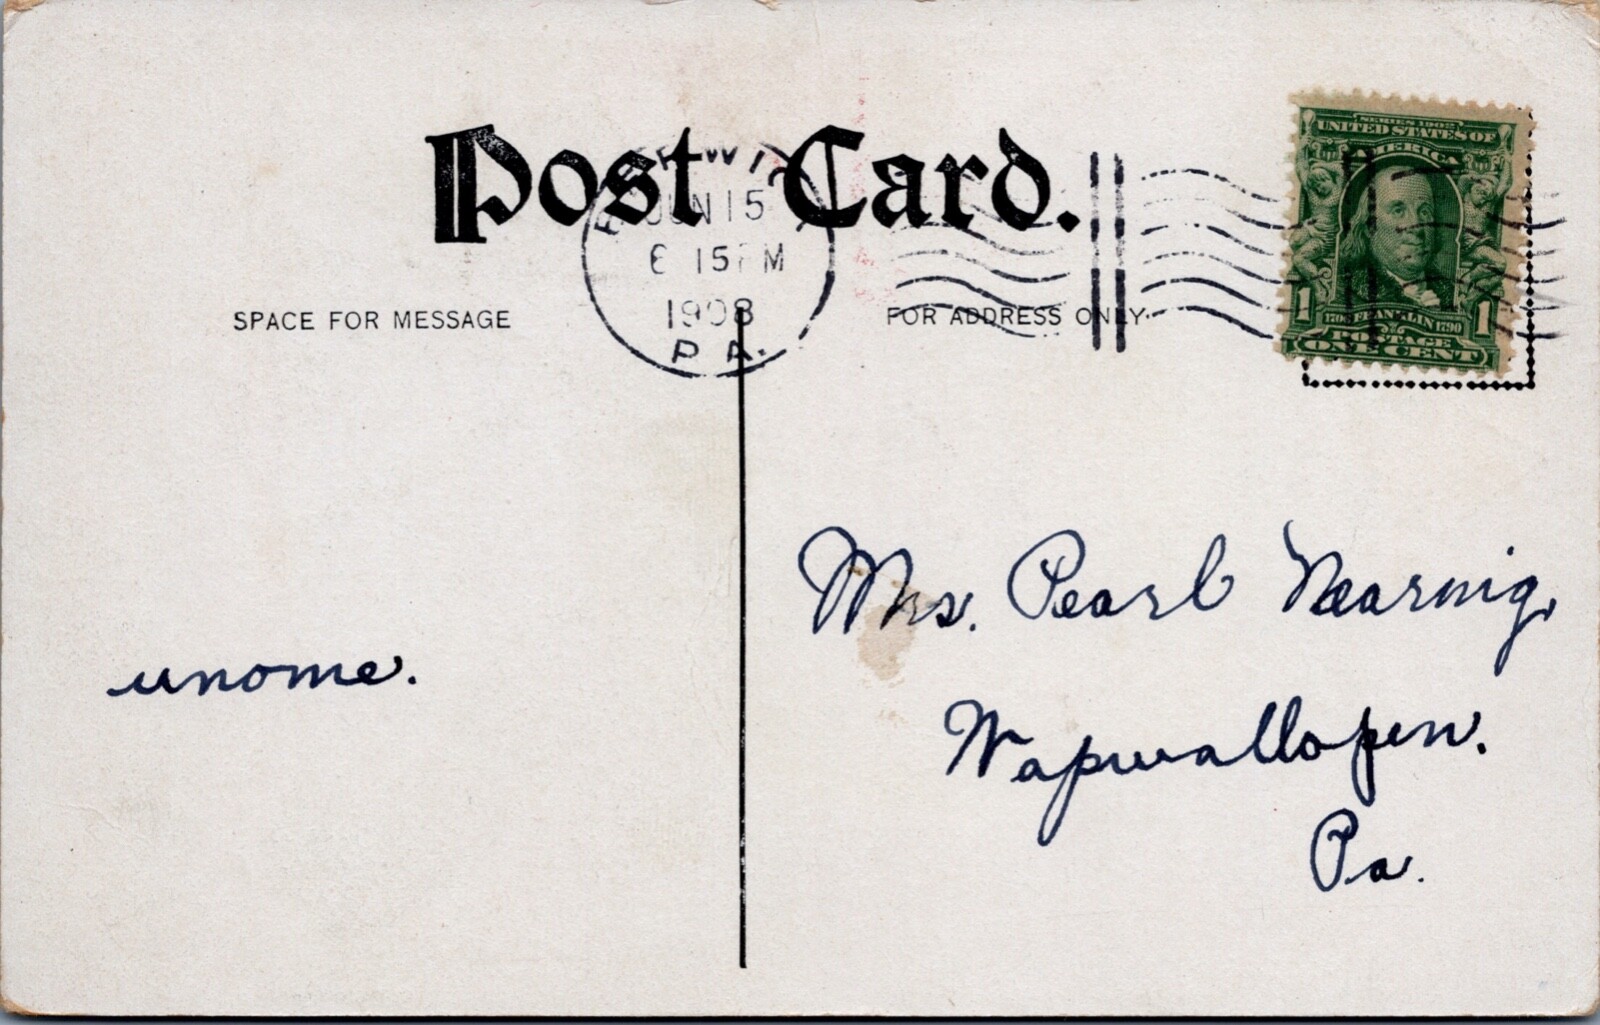 Post Card.
BERWICK
JUN 15
6 15 PM
1908
PA.
SPACE FOR MESSAGE
FOR ADDRESS ONLY
SERIES 1902
UNITED STATES OF
AMERICA
1706 FRANKLIN 1790
1 1
POSTAGE
ONE CENT
unome.
Mrs. Pearl Nearnig,
Wapwallopen.
Pa.